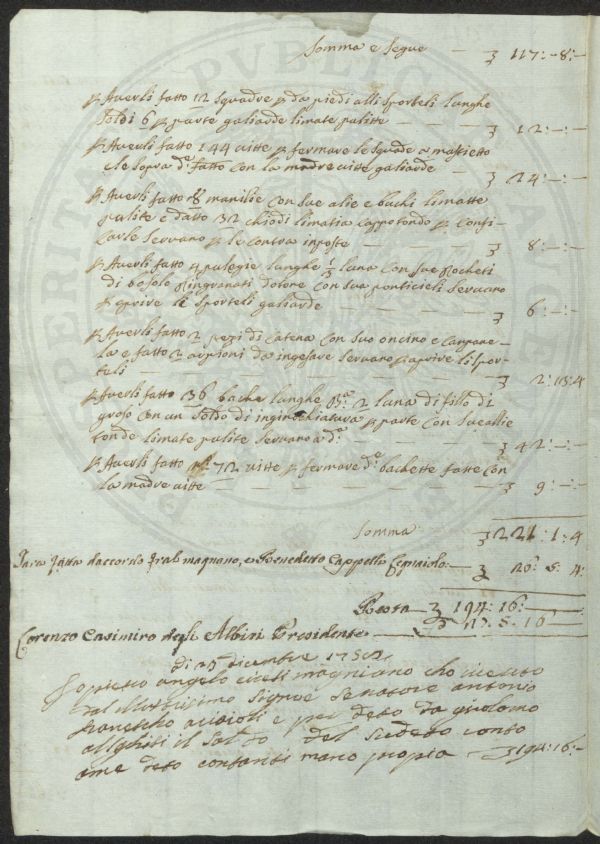 Somma e segue — 117:-8:-
p Averli fatto 12 squadre p da piedi alli sporteli lunghe
soldi 6 p parte galiarde limate pulite — 12:-:-
p Averli fatto 144 vitte p fermare le squadre e mastietto
che sopra d: fatto con la madre vitte galiarde — 24:-:-
p Averli fatto 8 maniglie con sue alie e buchi limatte
pulite e datto 32 chiodi limatia capo tondo p confi-
carle servano p le contra inposte — 8:-:-
p Averli fatto 4 pulegie lunghe luna con sue
di bosolo dotone con sua ponticieli servano
aprire li sporteli galiarde — 6:-:-
p Averli fatto 2 pezi di catena con suo oncino e canpane-
la e fatto 2 arpioni da ingesare servano p aprire li spor-
teli — 2:13:4
p Averli fatto 36 bache lunghe 2 luna di fillo di
groso con un soldo di p parte con sue allie
tonde limate pulite servano a d: — 42:-:-
p Averli fatto 72 vitte p fermare d:e bachette fatte con
la madre vitte — 9:-:-
Somma 221:1:4
Tara fatta d'accordo fral magnano, e Benedetto Cappelli legnaiolo — 26:5:4
Resta — 194:16:-
Lorenzo Casimiro degli Albizi Presidente
di 29 dicembre
Io pietro angelo magniano ho riceuto
dal Illustrissimo Signor Senatore antonio
francescho aciaioli e per deto da girolamo
il saldo del sudeto conto
ame deto contanti mano propia — 194:16:-